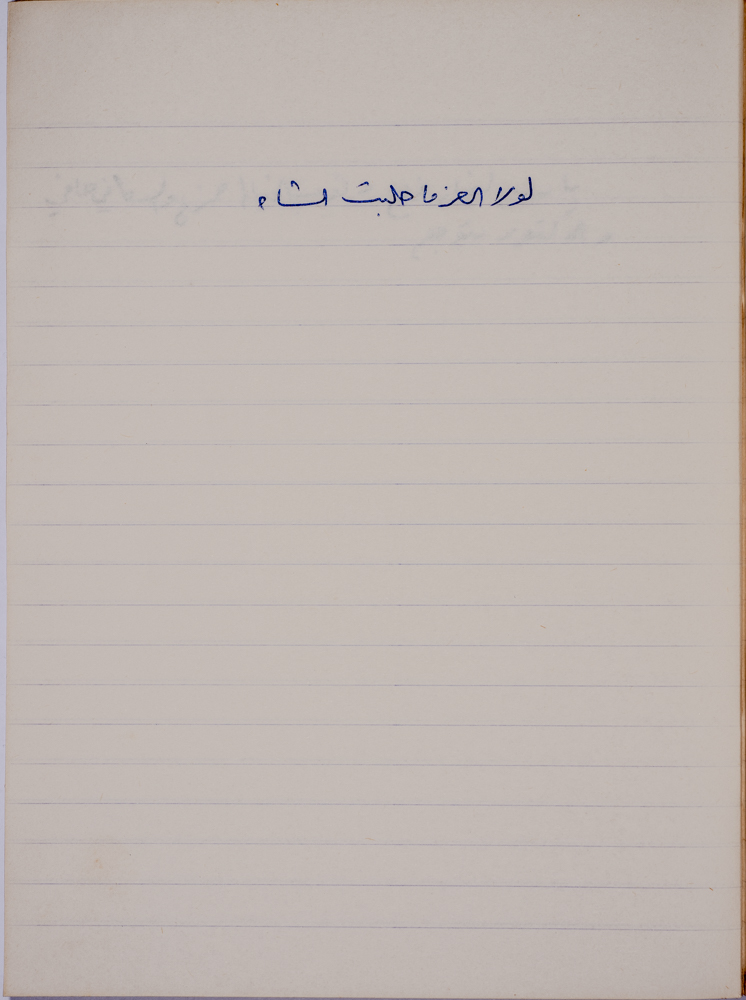 لولا العز ما حلبت الشاه